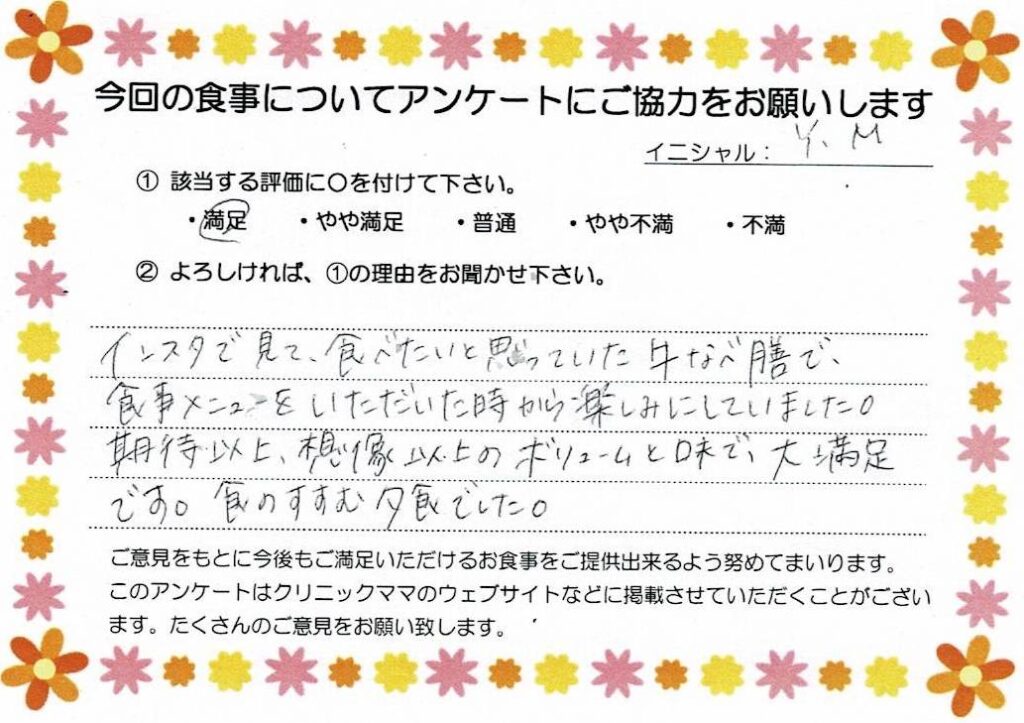 今回の食事についてアンケートにご協力をお願いします
イニシャル： Y. M
① 該当する評価に○を付けて下さい。
・満足 ・やや満足 ・普通 ・やや不満 ・不満
② よろしければ、①の理由をお聞かせ下さい。
インスタで見て、食べたいと思っていた牛なべ膳で、
食事メニューをいただいた時から楽しみにしていました。
期待以上、想像以上のボリュームと味で、大満足
です。食のすすむ夕食でした。
ご意見をもとに今後もご満足いただけるお食事をご提供出来るよう努めてまいります。
このアンケートはクリニックママのウェブサイトなどに掲載させていただくことがござい
ます。たくさんのご意見をお願い致します。